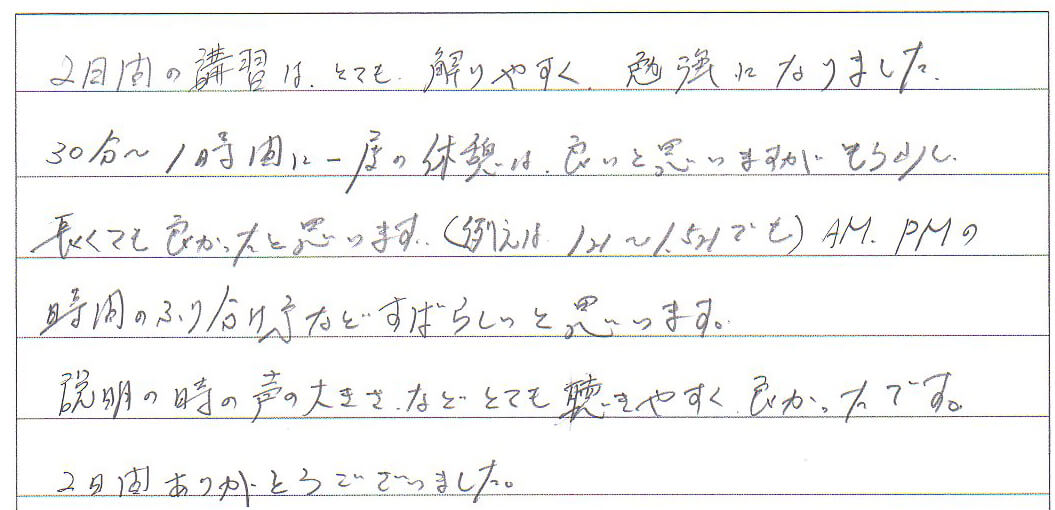 2日間の講習は、とても、解りやすく、勉強になりました。
30分〜1時間に一度の休憩は、良いと思いますがもう少し、
長くても良かったと思います。(例えば 1h〜1.5hでも) AM、PMの
時間のふり分け方などすばらしいと思います。
説明の時の声の大きさ、などとても聴きやすく、良かったです。
2日間ありがとうございました。